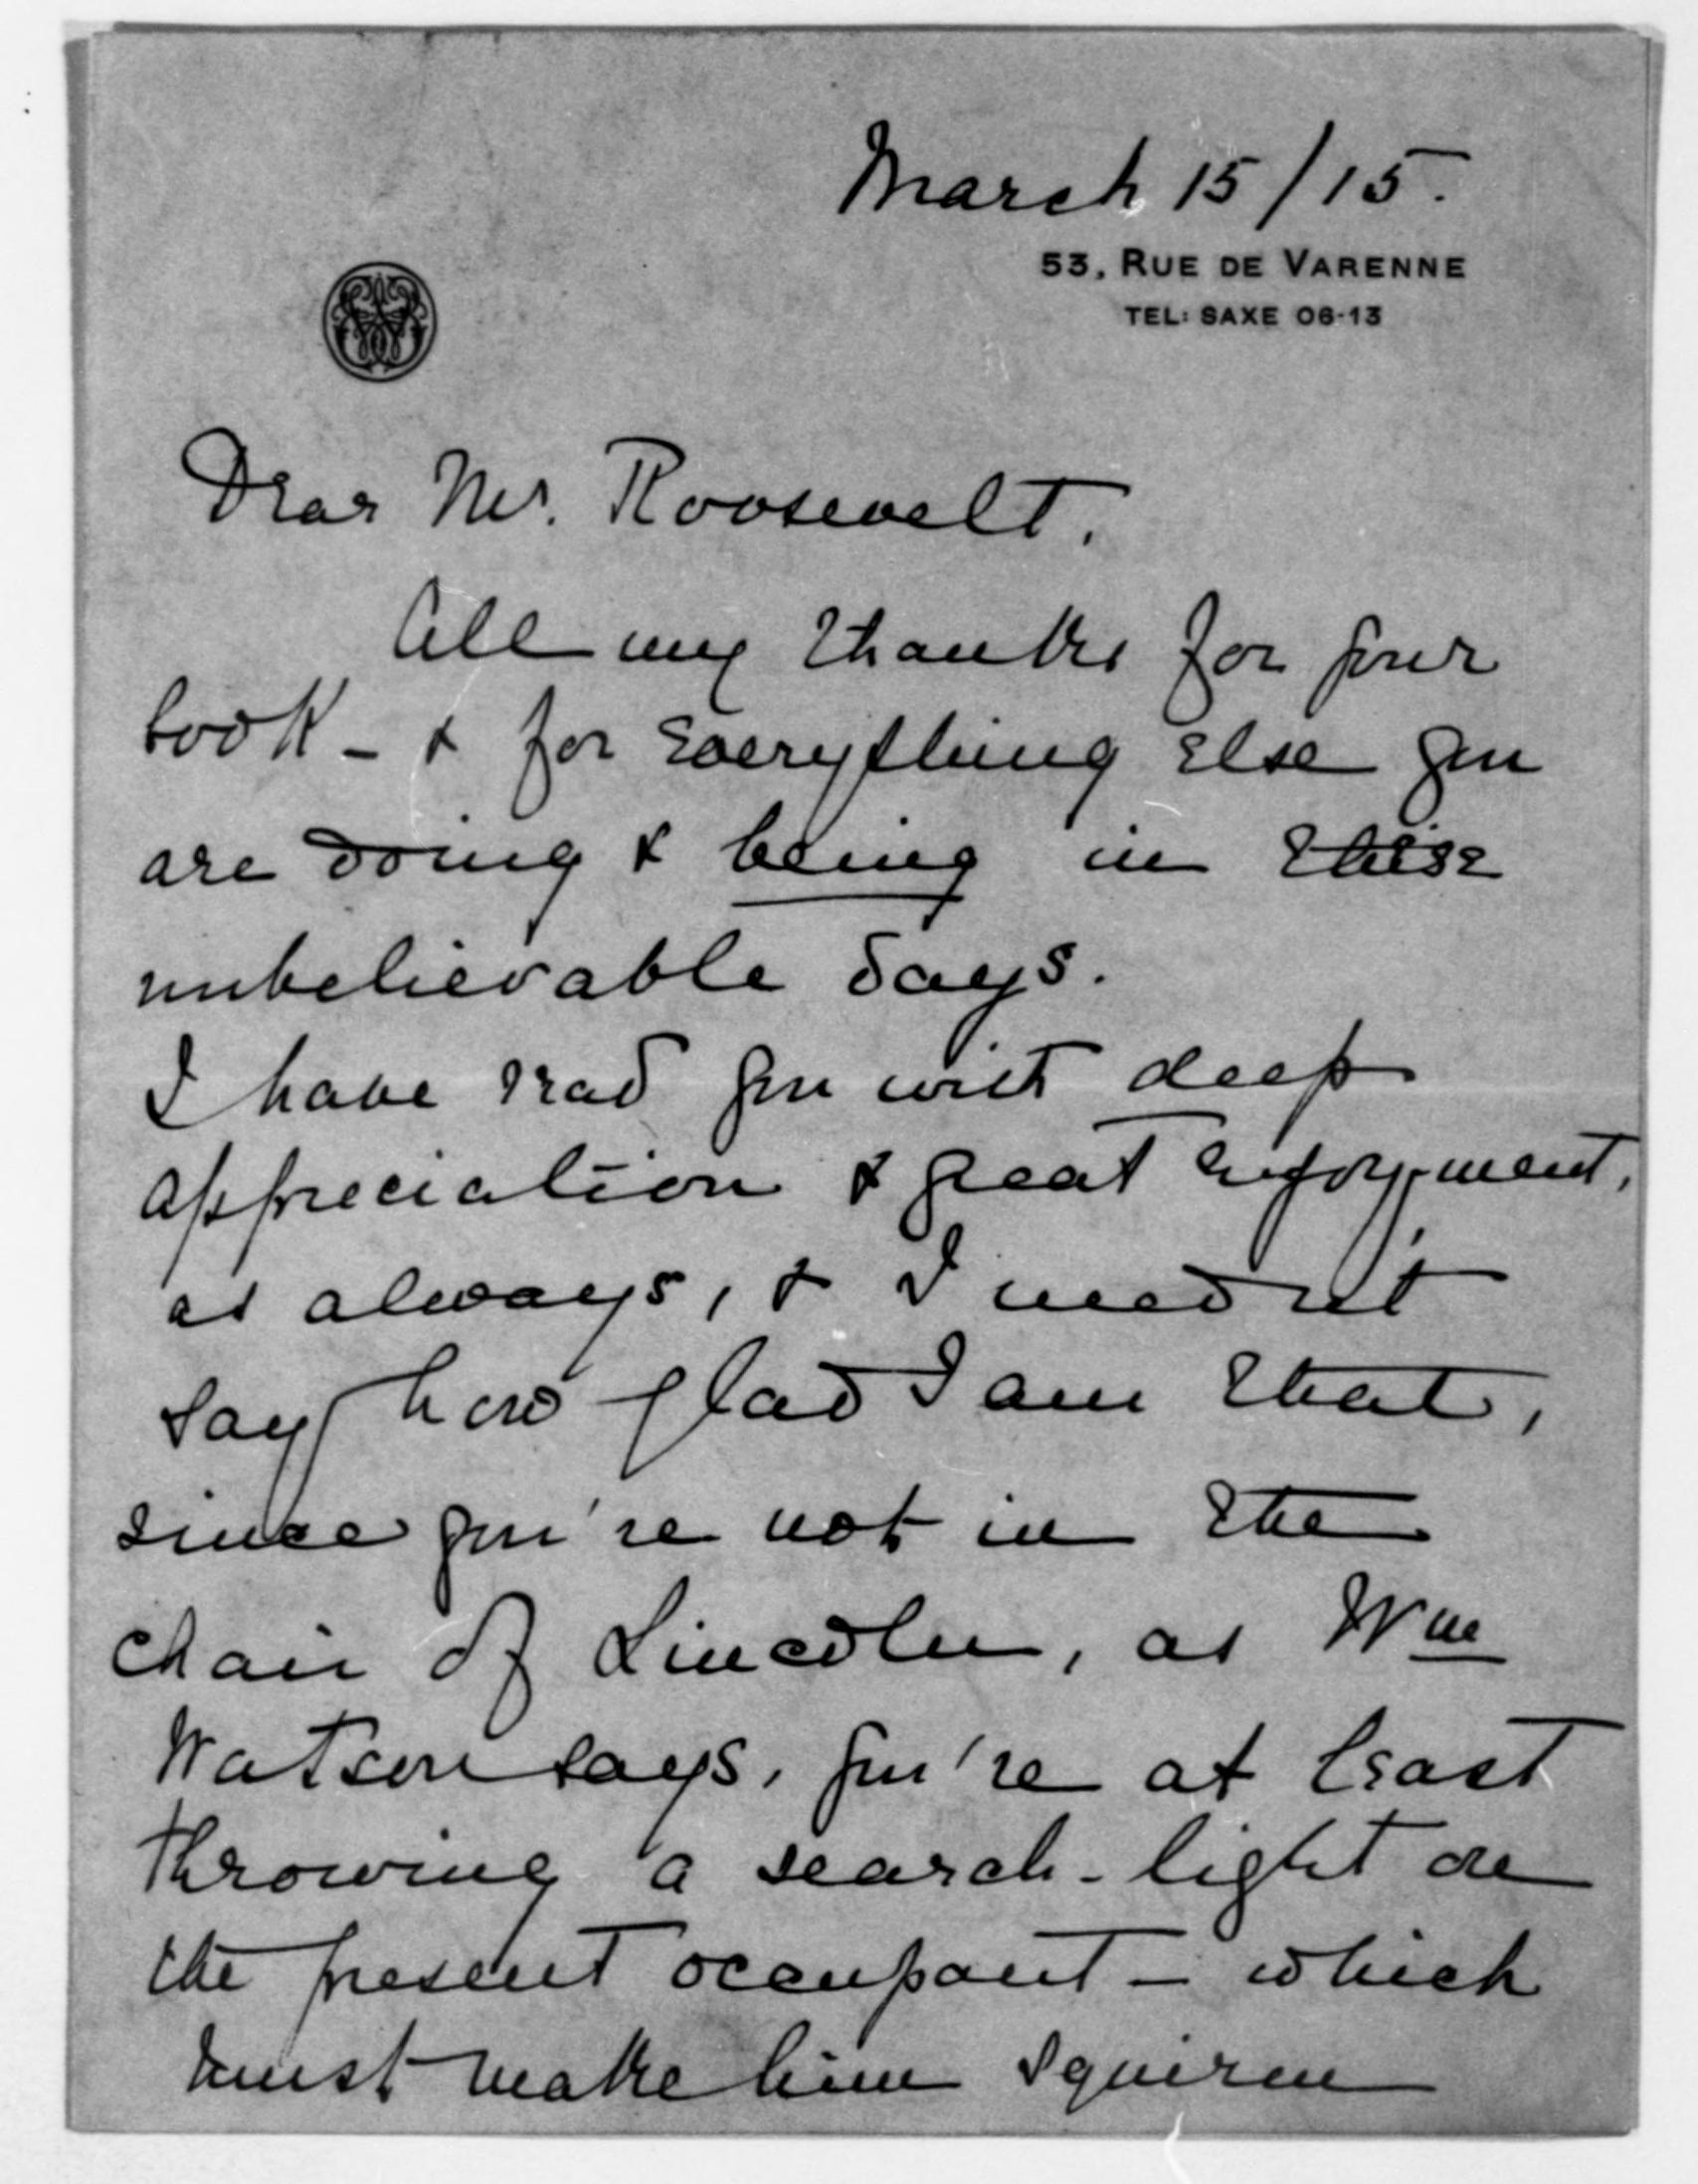 March 15/15.
53, RUE DE VARENNE
TEL: SAXE 06-13
Dear Mr. Roosevelt,
All my thanks for your
book - & for everything else you
are doing & being in these
unbelievable days.
I have read you with deep
appreciation & great enjoyment,
as always, & I needn't
say how glad I am that,
since you're not in the
chair of Lincoln, as Wm
Watson says, you're at least
throwing a search-light on
the present occupant - which
must make him squirm